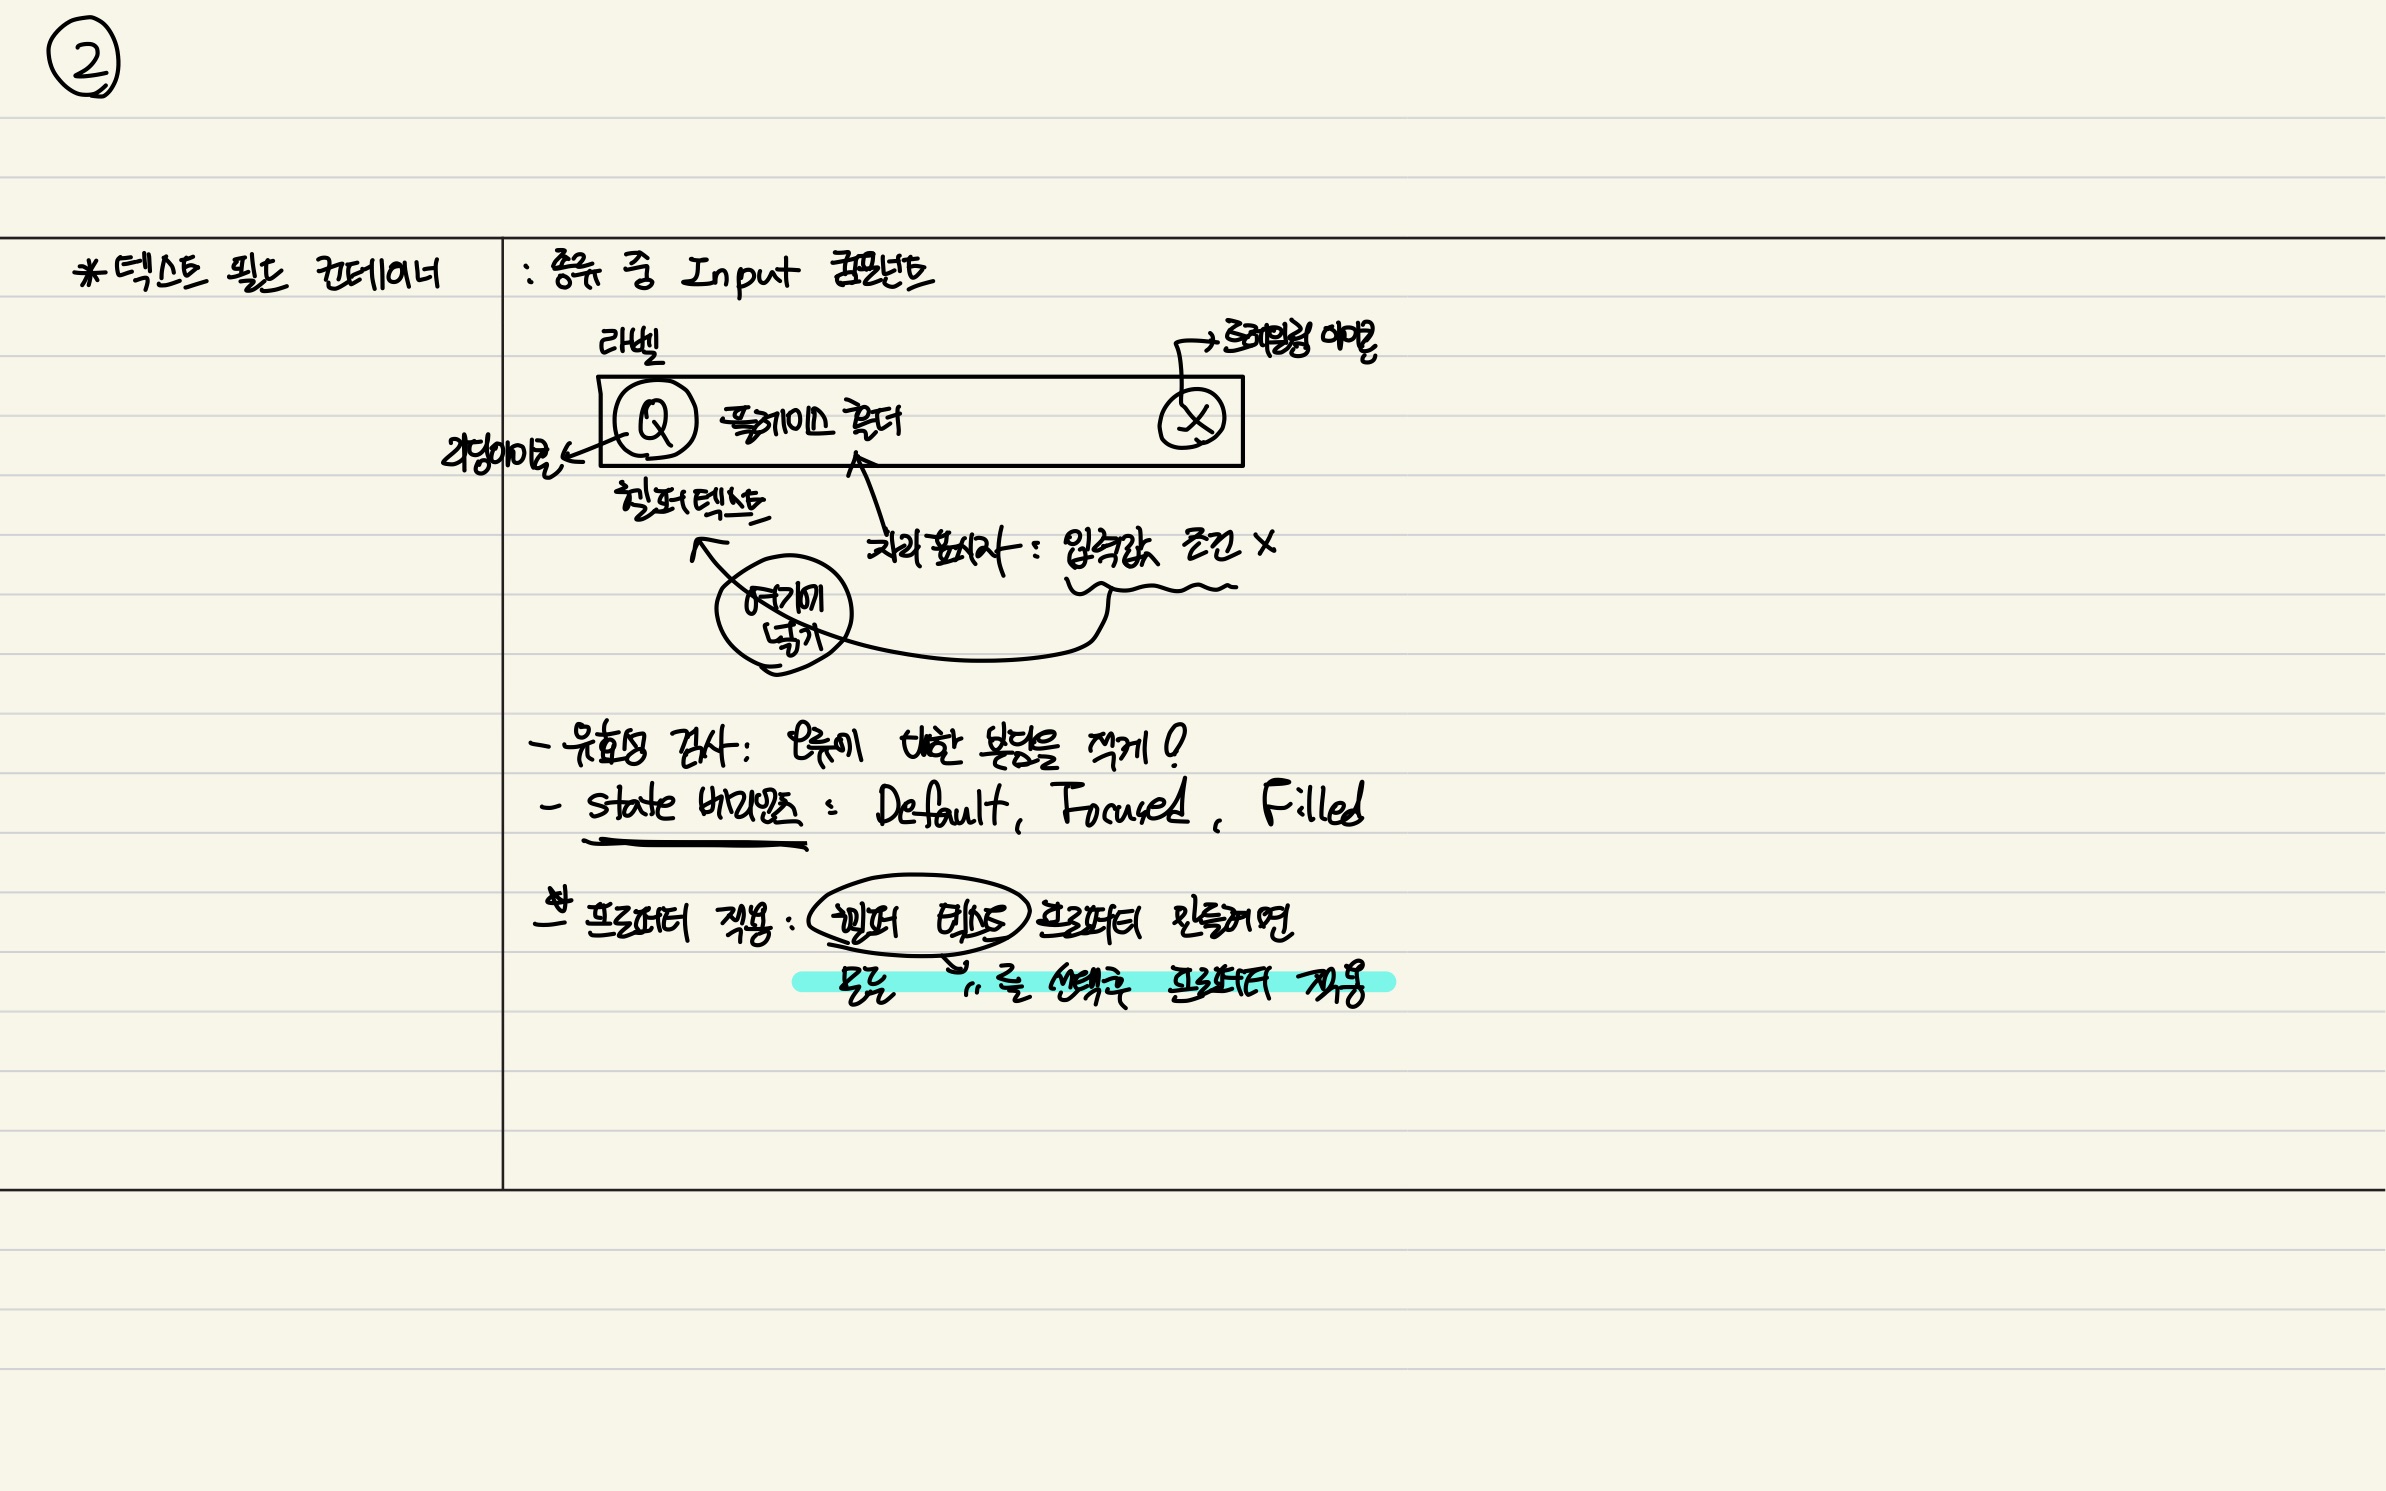 2
* 텍스트 필드 컨테이너
: 종류 중 Input 컴포넌트
라벨
트레일링 아이콘
Q 플레이스 홀더 X
리딩아이콘
헬퍼 텍스트
자리 표시자 : 입력값 조건 X
여기에
넣기
- 유효성 검사 : 오류에 대한 부담을 적게!
- state 베리언츠 : Default, Focused, Filled
* 프로퍼티 적용 : 헬퍼 텍스트 프로퍼티 만들려면
모든 〃를 선택후 프로퍼티 적용